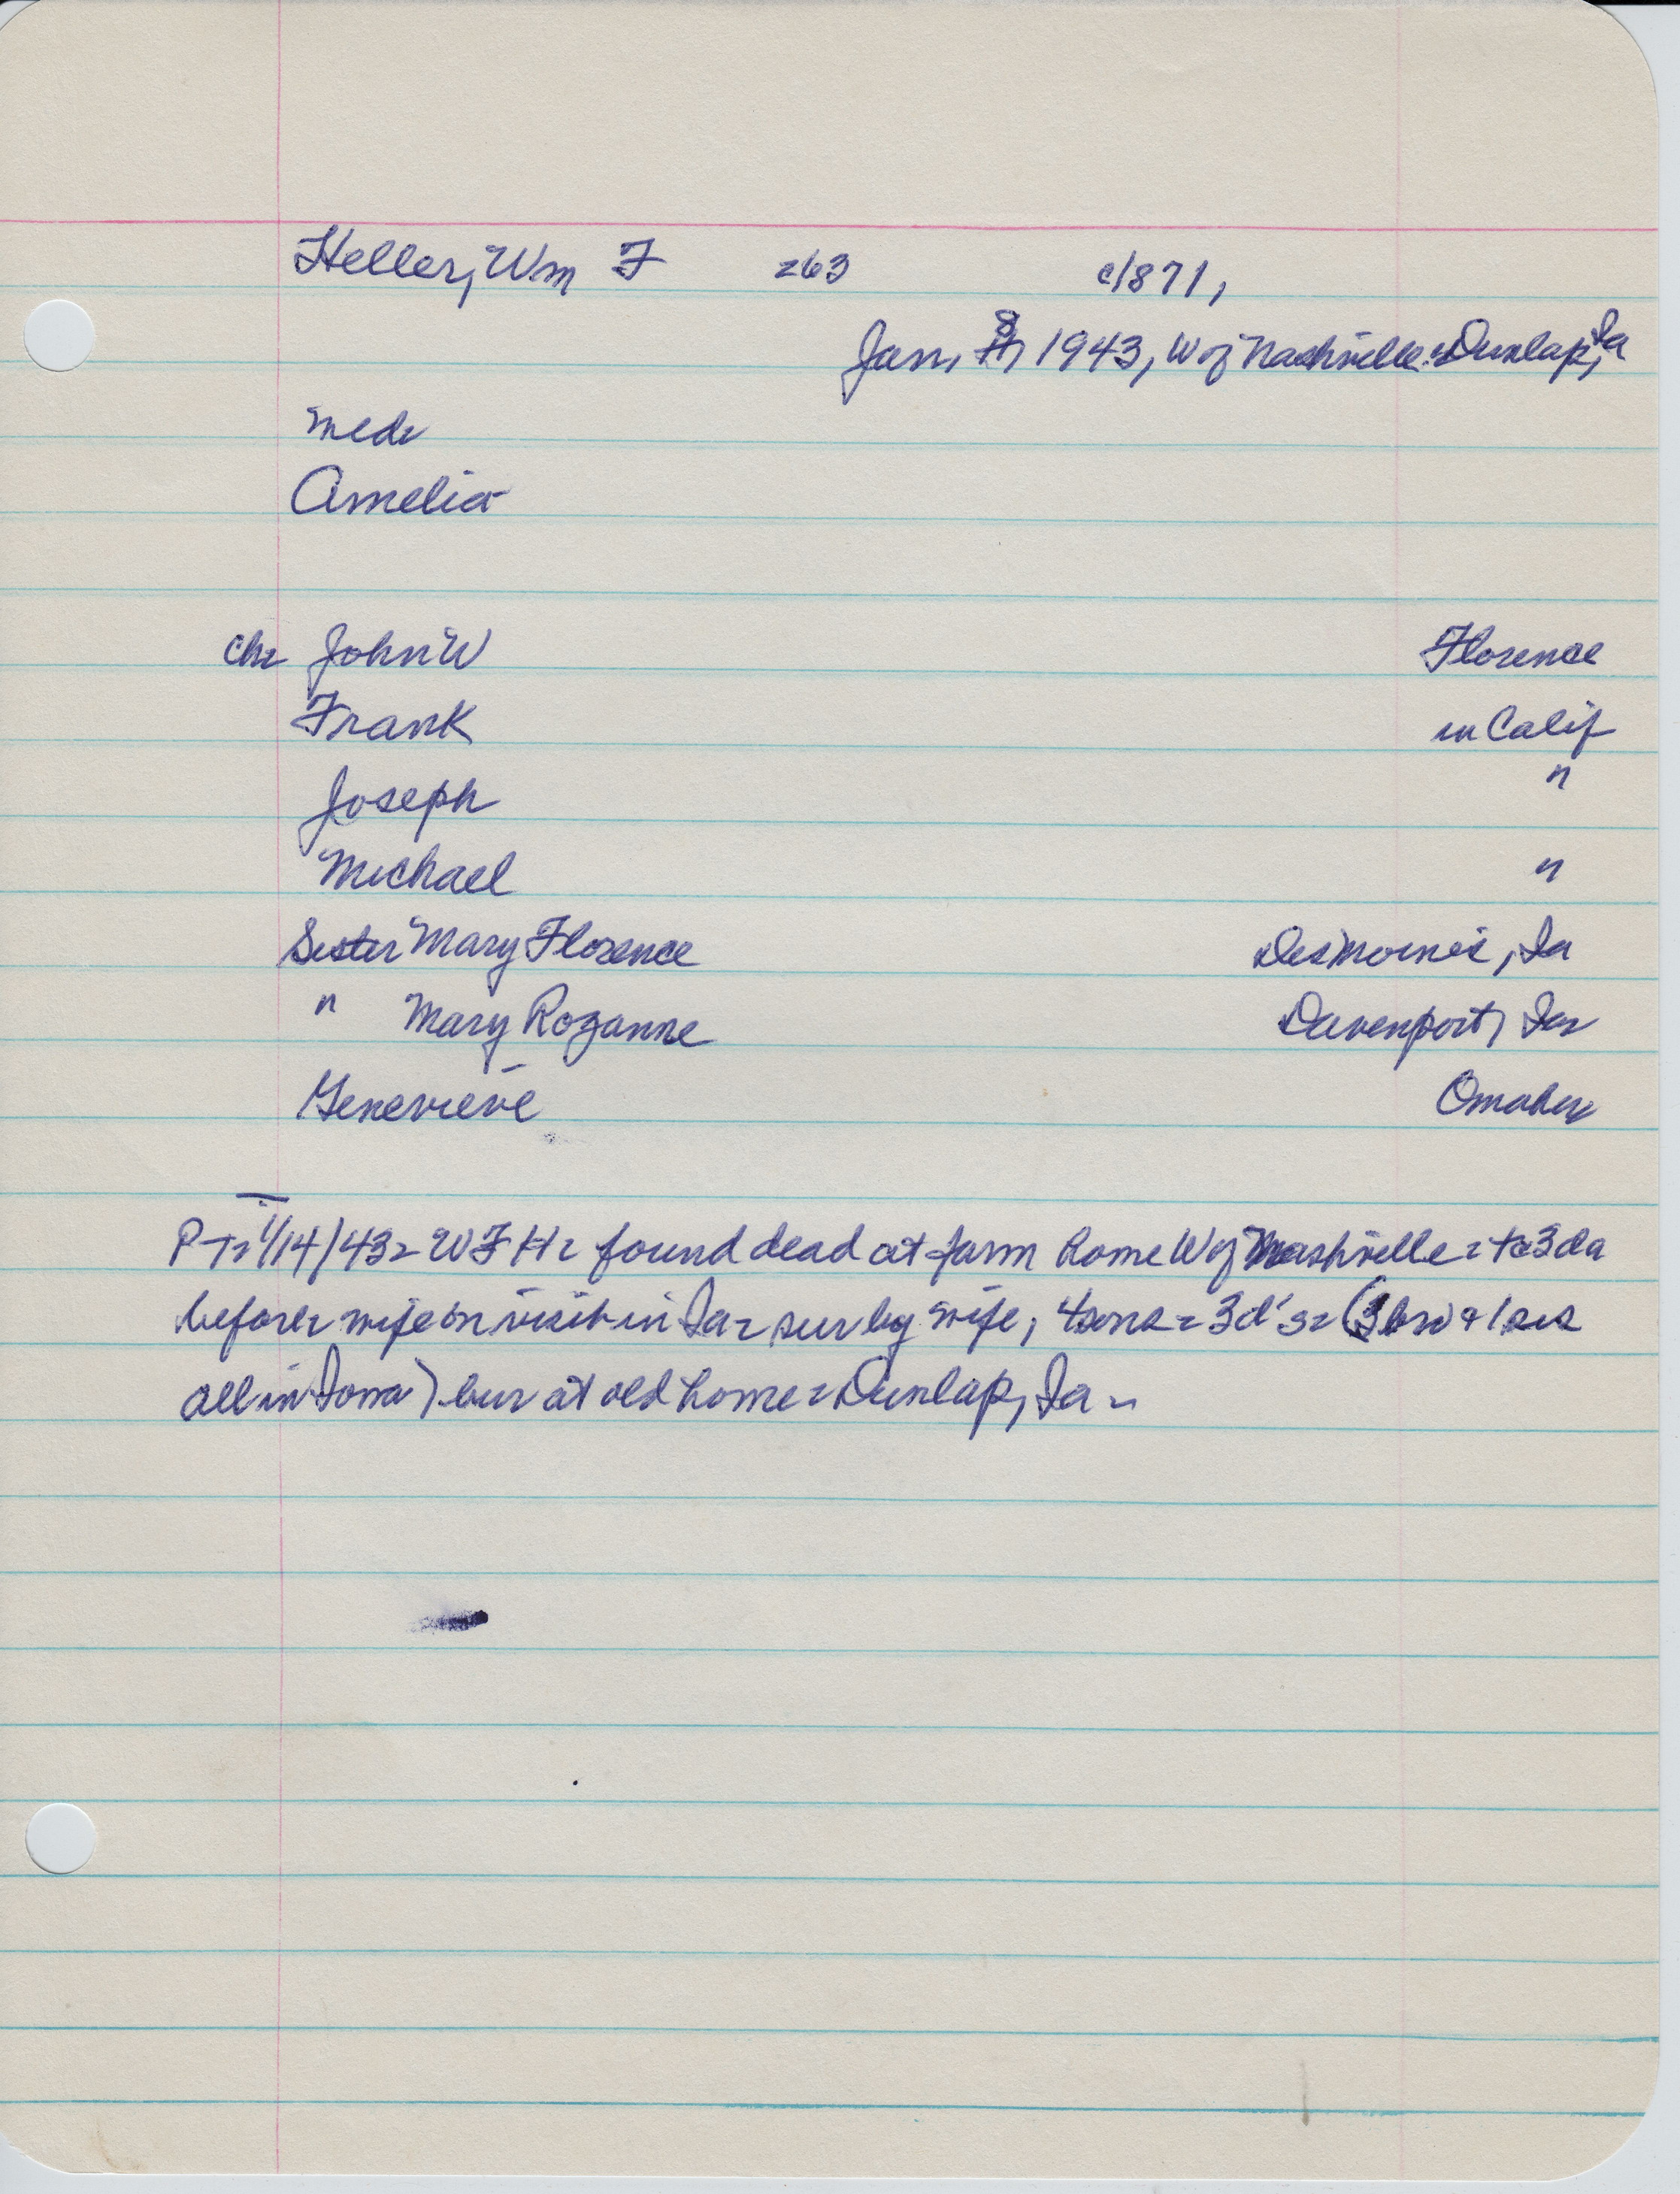 Heller, Wm F =63 c1871,
Jan, 8, 1943, W of Nashville = Dunlap, Ia
Med=
Amelia
Ch= John W Florence
Frank in Calif
Joseph "
Michael "
Sister Mary Florence Des Moines, Ia
" Mary Rozanne Davenport, Ia=
Genevieve Omaha
P-T= 1/14/43= WFH= found dead at farm home W of Nashville = 3 da
before= wife on visit in Ia= sur by wife, 4 sons = 3 d's= (3 bro & 1 sis
all in Iowa) bur at old home = Dunlap, Ia=